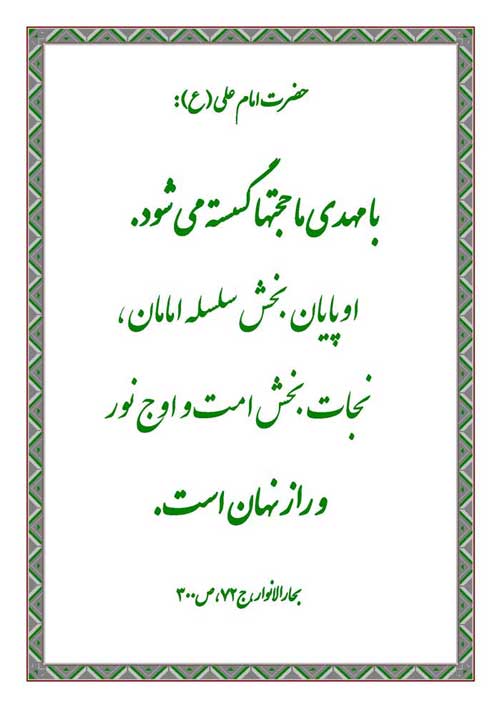 حضرت امام علی (ع):
با مهدی ما حجتها گسسته می شود.
او پایان بخش سلسله امامان،
نجات بخش امت و اوج نور
و راز نهان است.
بحارالانوار، ج۷۲، ص۳۰۰